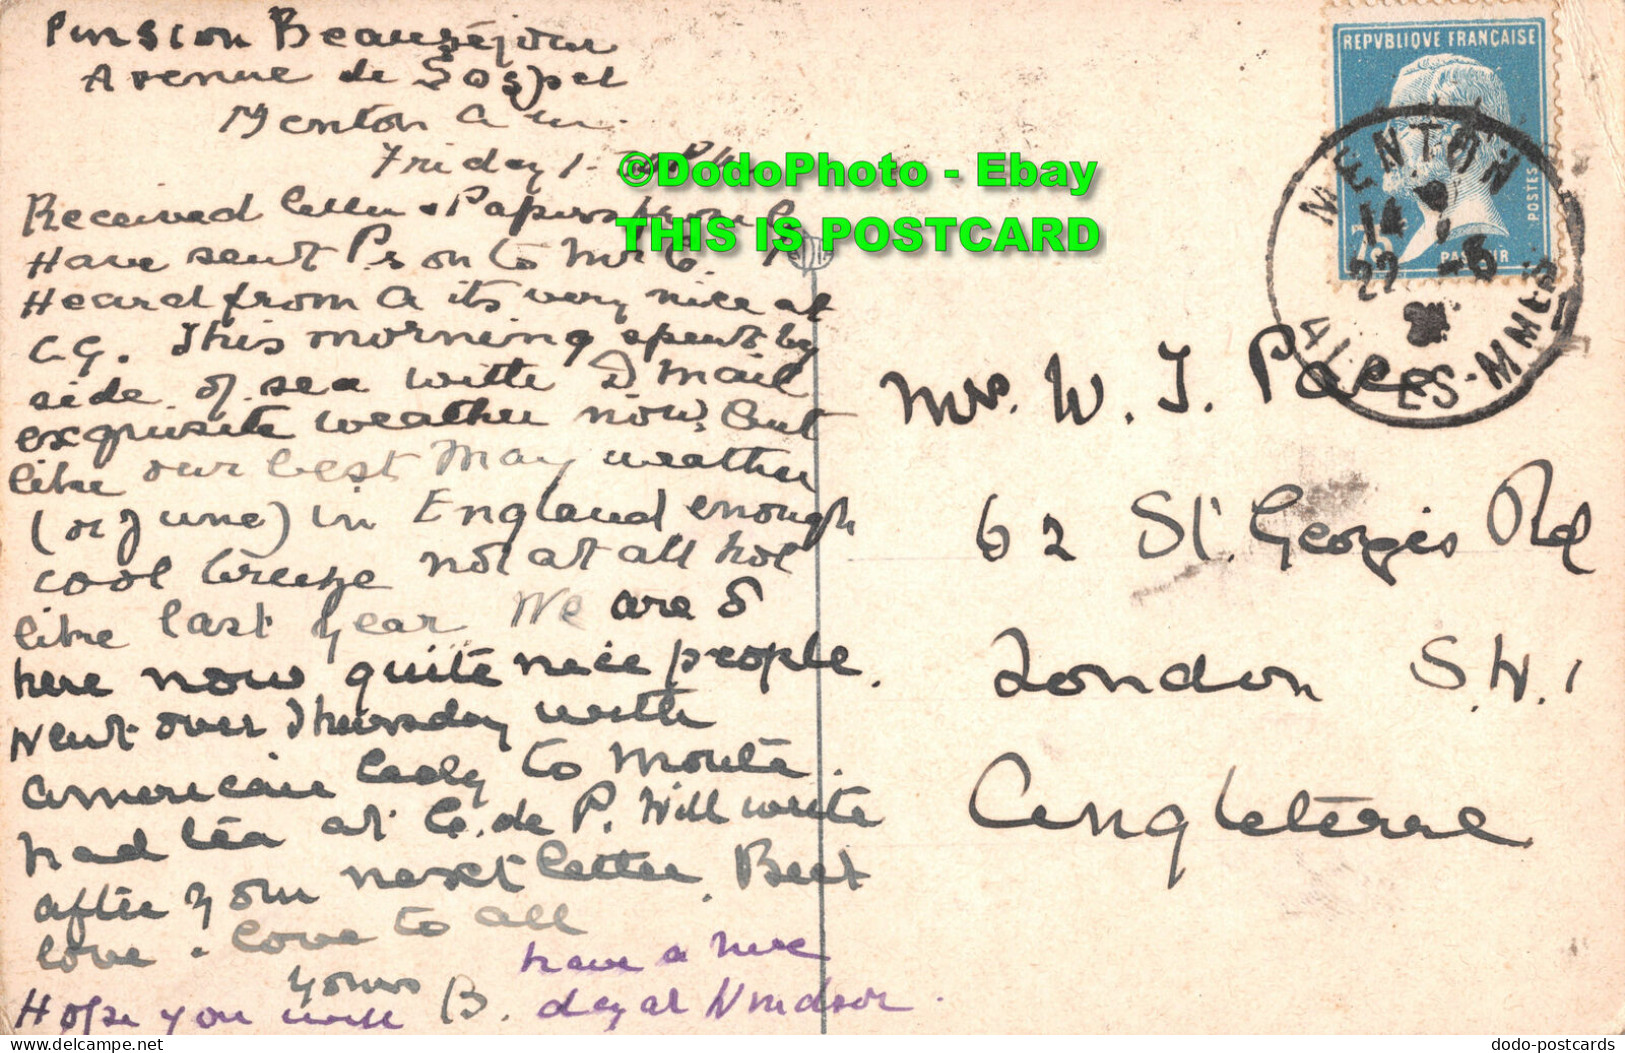 Pension Beauséjour
Avenue de Sospel
Menton A M.
Friday 1.
©DodoPhoto - Ebay
THIS IS POSTCARD
Received letter & Papers from
Have sent P.s on to Mr C.
Heard from A its very nice at
C G. This morning spent by
side of sea with D Mail
exquisite weather now, but
like our best May weather
(or June) in England enough
cool breeze not at all hot
like last year We are 8
here now quite nice people.
Went over Thursday with
American lady to Monte.
had tea at C. de P. Will write
after your next letter. Best
love. love to all
yours B.
Hope you will have a nice
day at Windsor.
REPVBLIQVE FRANÇAISE
POSTES
75c
PASTEUR
MENTON
14
22 -6
ALPES-MMES
Mrs. W. J. Pace
62 St. Georges Rd
London S.W.1
Angleterre
dodo-postcards
delcampe.net